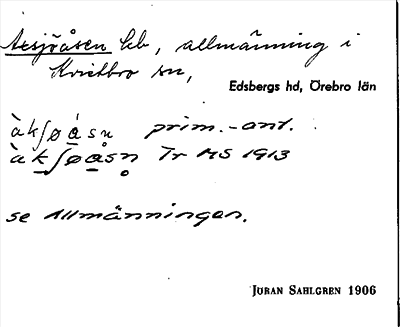 Axsjöåsen bb, allmänning i
Kvistbro sn,
Edsbergs hd, Örebro län
àkʃøåsn prim.-ant.
àkʃøåsn Tr MS 1913
se Allmänningen.
JÖRAN SAHLGREN 1906